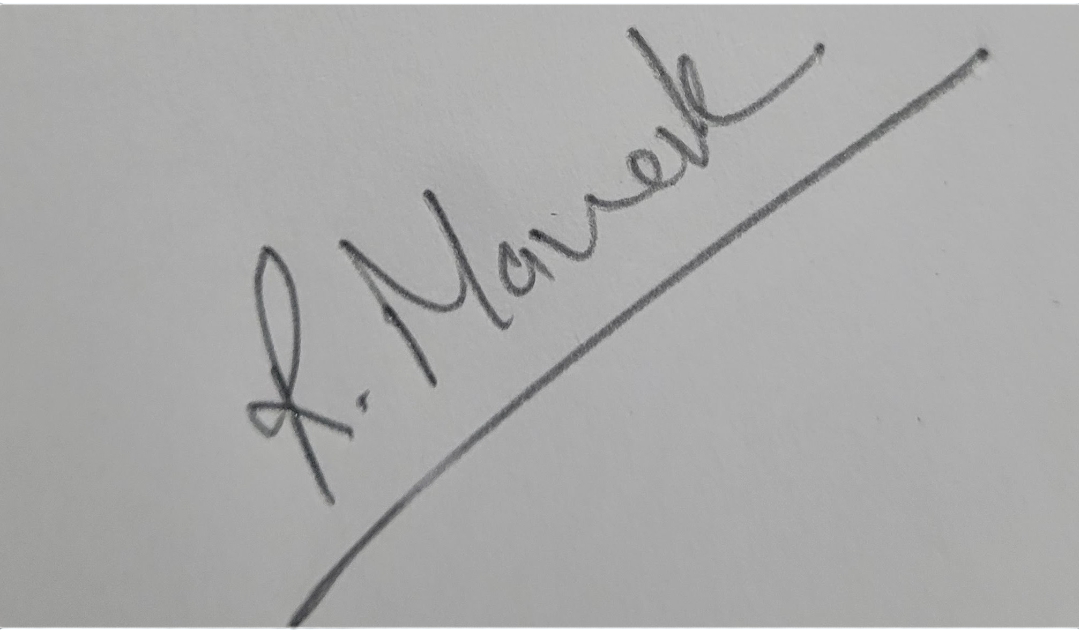 R. Manek